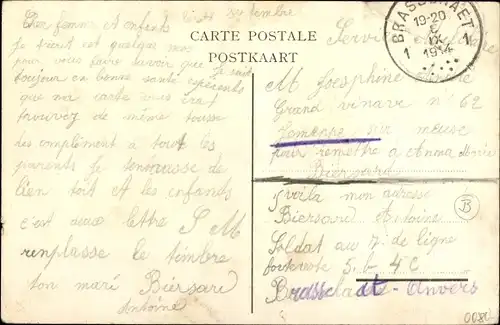 Cher femme et enfants
Je t'ecrit ces quelque mos
pour vous faire savoir que je suit
toujour en bonne santé j'espère
que ma carte vous
trouvez de même tousse
des complément a tout les
parents je t'
bien toit et les enfants
c'est deux lettre S M
renplasse le timbre
ton mari Biersard
Antoine
CARTE POSTALE
POSTKAART
BRASSCHAET
19-20
6
IX
1914
1 1
Service militaire
M Joesphine
Grand vinave n° 62
Jemeppe sur meuse
pour remettre a Anna Marie
Biersard
Voila mon adresse
Biersard Antoine
Soldat au 7 de ligne
5. b 4 C
Brasschaet-Anvers
B